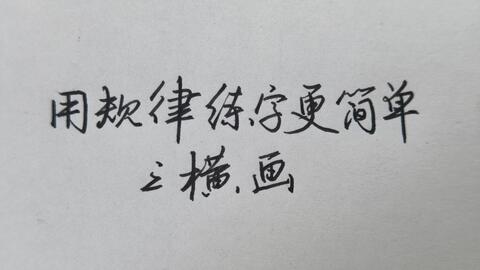 用规律练字更简单
之横、画